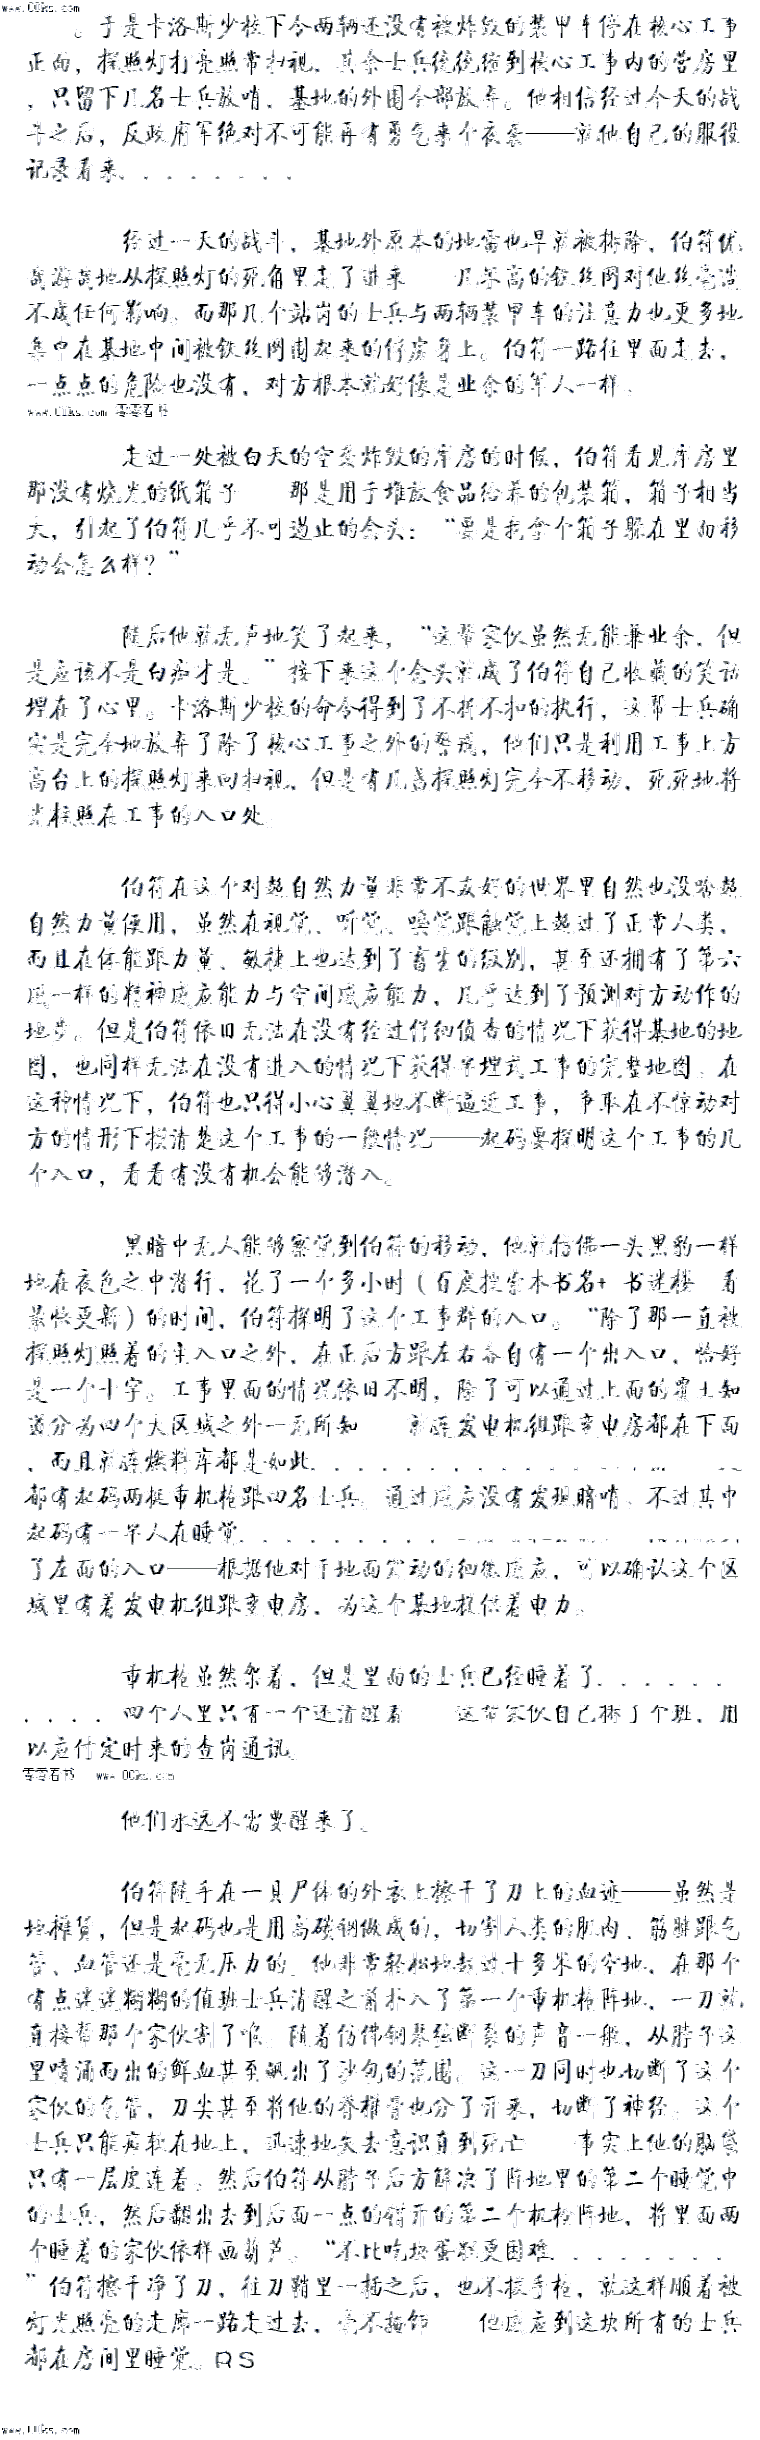 www.00ks.com
。于是卡洛斯少校下令两辆还没有被炸毁的装甲车停在核心工事
正面，探照灯打亮照常扫视，其余士兵统统缩到核心工事内的营房里
，只留下几名士兵放哨，基地的外围全部放弃。他相信经过今天的战
斗之后，反政府军绝对不可能再有勇气来个夜袭——就他自己的服役
记录看来．．．．．．．．
经过一天的战斗，基地外原本的地雷也早就被排除，伯符优
哉游哉地从探照灯的死角里走了进来 几米高的铁丝网对他丝毫造
不成任何影响。而那几个站岗的士兵与两辆装甲车的注意力也更多地
集中在基地中间被铁丝网围起来的营房身上。伯符一路往里面走去，
一点点的危险也没有，对方根本就好像是业余的军人一样。
www.00ks.com 零零看书
走过一处被白天的空袭炸毁的库房的时候，伯符看见库房里
那没有烧光的纸箱子 那是用于堆放食品给养的包装箱，箱子相当
大，引起了伯符几乎不可遏止的念头：“要是我拿个箱子躲在里面移
动会怎么样？”
随后他就无声地笑了起来，“这帮家伙虽然无能兼业余，但
是应该不是白痴才是。”接下来这个念头就成了伯符自己收藏的笑话
埋在了心里。卡洛斯少校的命令得到了不折不扣的执行，这帮士兵确
实是完全地放弃了除了核心工事之外的警戒，他们只是利用工事上方
高台上的探照灯来回扫视，但是有几盏探照灯完全不移动，死死地将
光柱照在工事的入口处。
伯符在这个对超自然力量非常不友好的世界里自然也没啥超
自然力量使用，虽然在视觉、听觉、嗅觉跟触觉上超过了正常人类，
而且在体能跟力量、敏捷上也达到了畜生的级别，甚至还拥有了第六
感一样的精神感应能力与空间感应能力，几乎达到了预测对方动作的
地步。但是伯符依旧无法在没有经过仔细侦查的情况下获得基地的地
图，也同样无法在没有进入的情况下获得半埋式工事的完整地图。在
这种情况下，伯符也只得小心翼翼地不断逼近工事，争取在不惊动对
方的情形下摸清楚这个工事的一般情况——起码要探明这个工事的几
个入口，看看有没有机会能够潜入。
黑暗中无人能够察觉到伯符的移动，他就仿佛一头黑豹一样
地在夜色之中潜行，花了一个多小时（百度搜索本书名+ 书迷楼 看
最快更新）的时间，伯符探明了这个工事群的入口。“除了那一直被
探照灯照着的主入口之外，在正后方跟左右各自有一个出入口，恰好
是一个十字。工事里面的情况依旧不明，除了可以通过上面的覆土知
道分为四个大区域之外一无所知 就连发电机组跟变电房都在下面
，而且就连燃料库都是如此．．．．．．．．．．．．．．
都有起码两挺重机枪跟四名士兵。通过感应没有发现暗哨，不过其中
起码有一半人在睡觉．．．．．．．．．．．．
了左面的入口——根据他对于地面震动的细微感应，可以确认这个区
域里有着发电机组跟变电房，为这个基地提供着电力。
重机枪虽然架着，但是里面的士兵已经睡着了．．．．．．
．．．．四个人里只有一个还清醒着 这帮家伙自己排了个班，用
以应付定时来的查岗通讯。
零零看书 www.00ks.com
他们永远不需要醒来了。
伯符随手在一具尸体的外衣上擦干了刀上的血迹——虽然是
地摊货，但是起码也是用高碳钢做成的，切割人类的肌肉、筋腱跟气
管、血管还是毫无压力的。他非常轻松地越过十多米的空地，在那个
有点迷迷糊糊的值班士兵清醒之前扑入了第一个重机枪阵地，一刀就
直接帮那个家伙割了喉。随着仿佛钢琴弦断裂的声音一般，从脖子这
里喷涌而出的鲜血甚至飙出了沙包的范围。这一刀同时也切断了这个
家伙的气管，刀尖甚至将他的脊椎骨也分了开来，切断了神经。这个
士兵只能瘫软在地上，迅速地失去意识直到死亡 事实上他的脑袋
只有一层皮连着。然后伯符从脖子后方解决了阵地里的第二个睡觉中
的士兵，然后翻出去到后面一点的错开的第二个机枪阵地，将里面两
个睡着的家伙依样画葫芦。“不比吃块蛋糕更困难．．．．．．．．
”伯符擦干净了刀，往刀鞘里一插之后，也不拔手枪，就这样顺着被
灯光照亮的走廊一路走过去，毫不掩饰 他感应到这块所有的士兵
都在房间里睡觉。RS
www.00ks.com